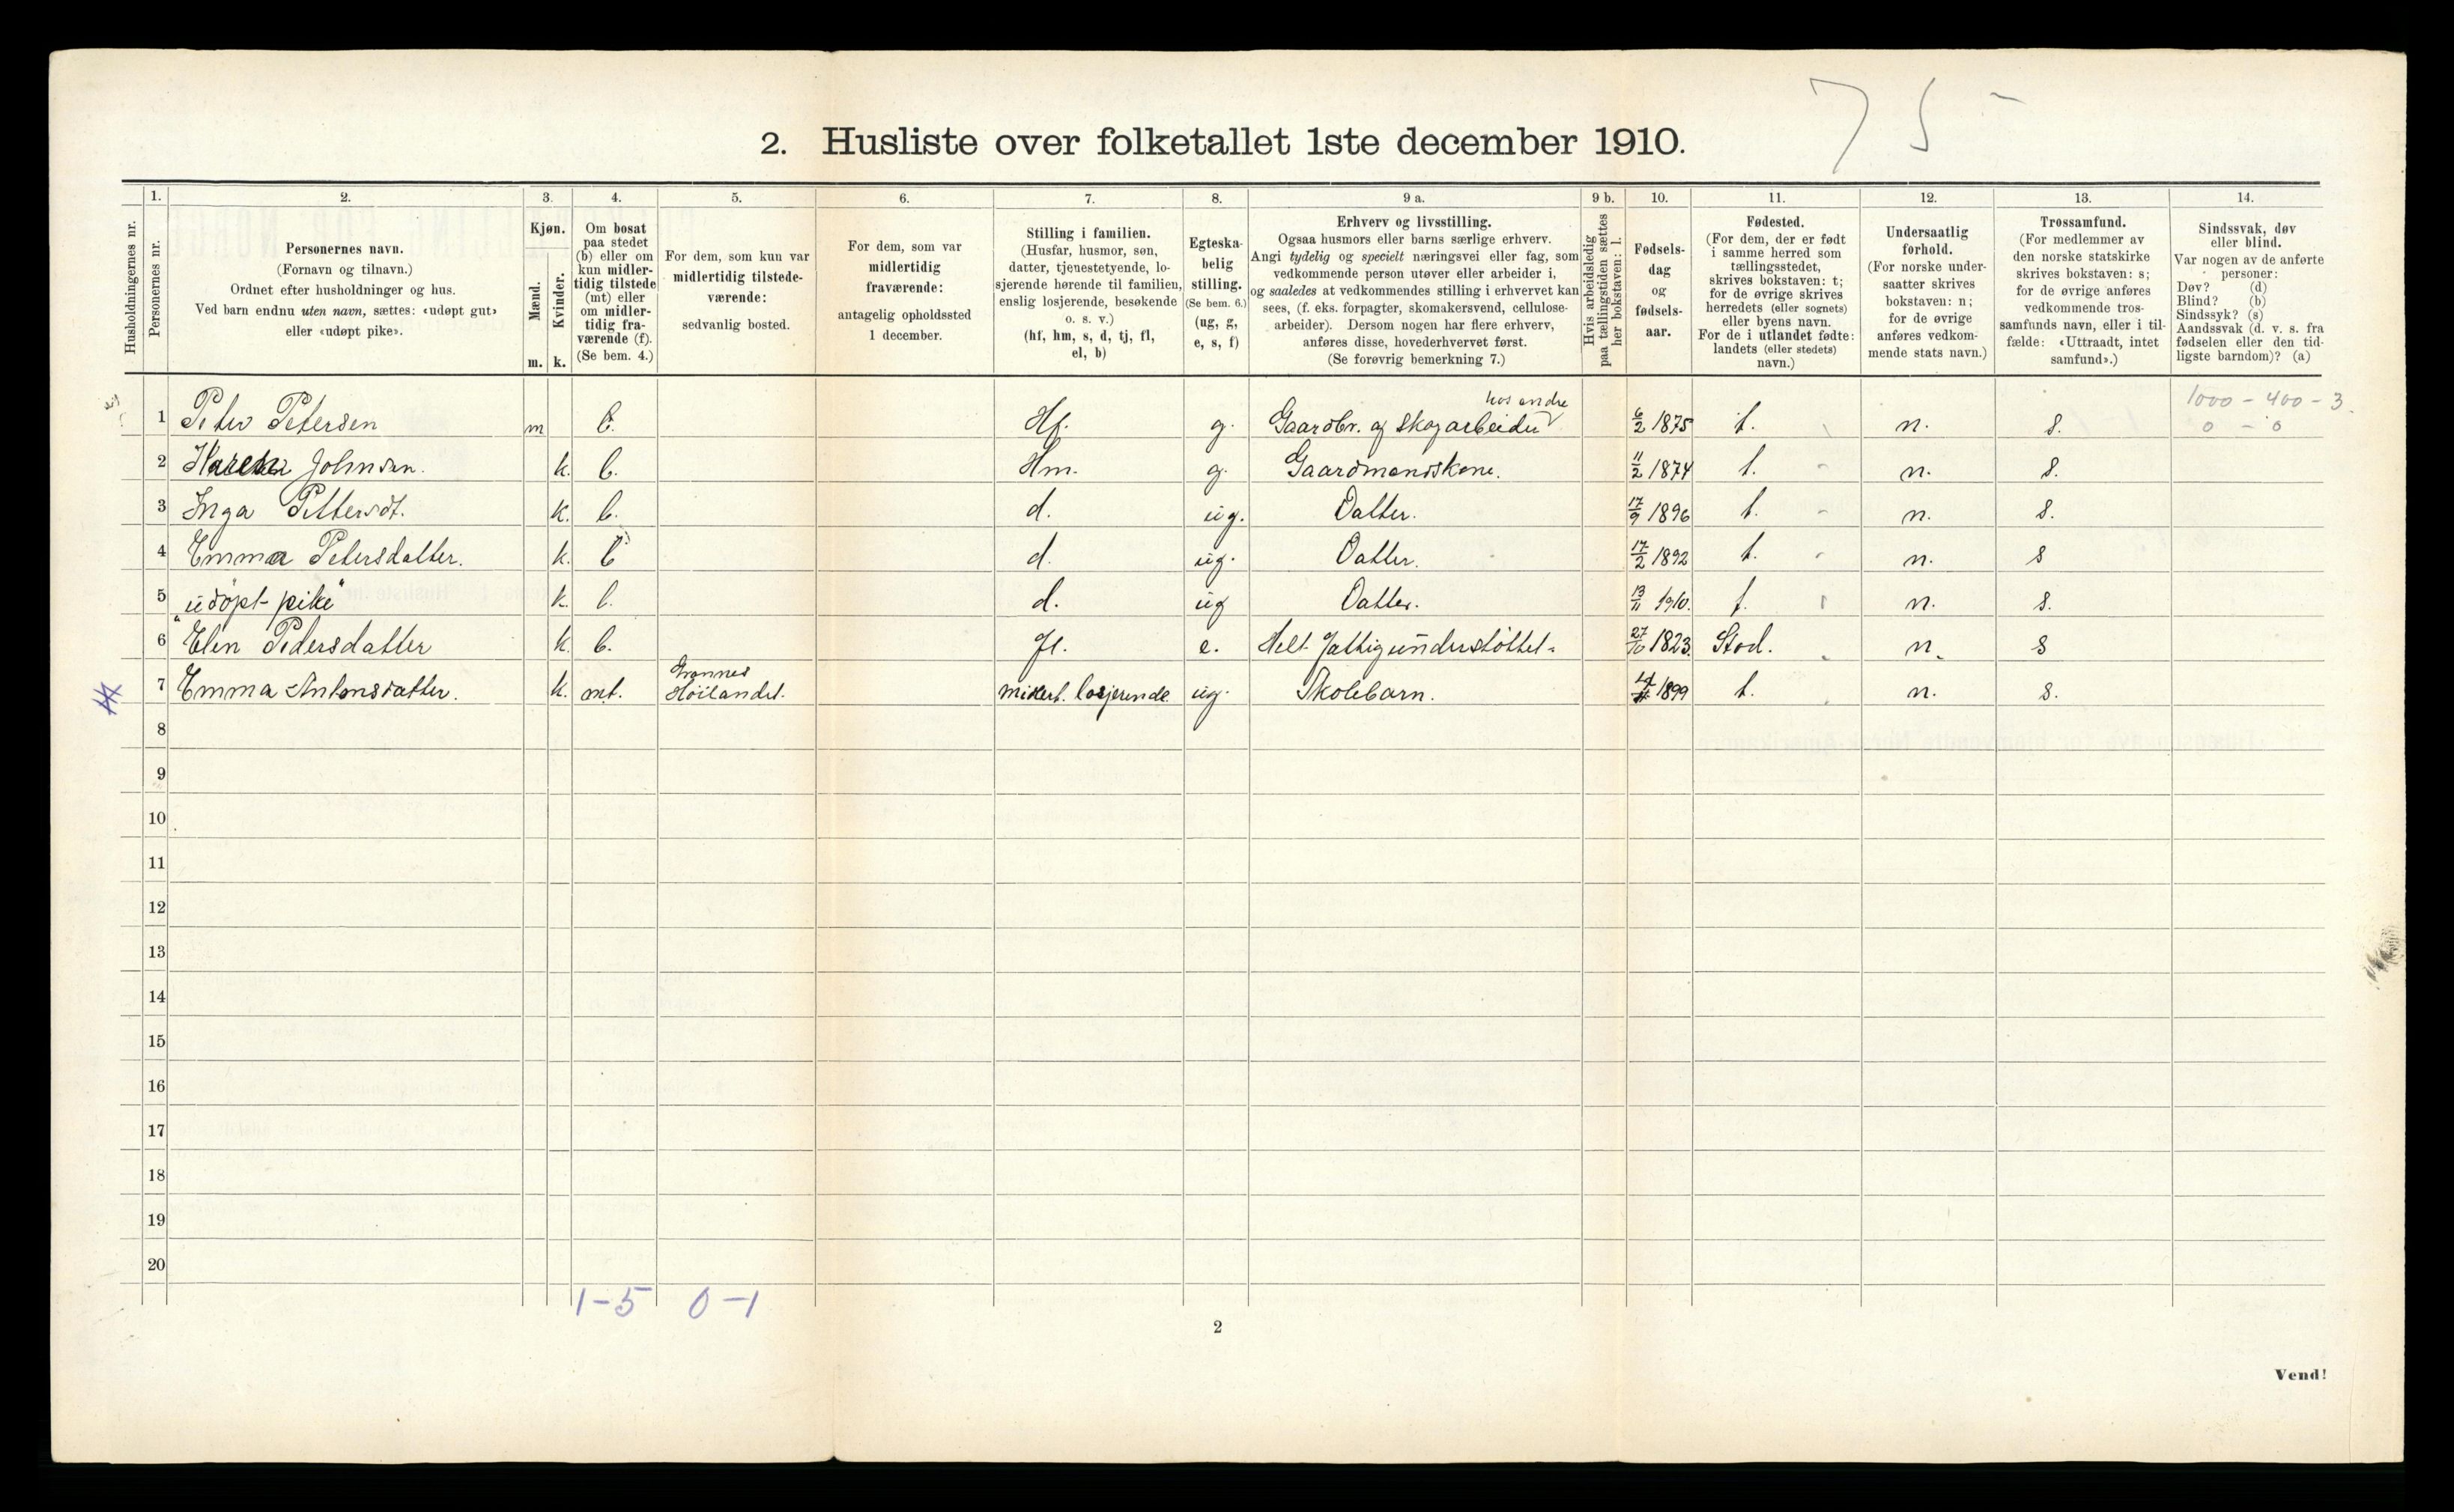 75 -
2. Husliste over folketallet 1ste december 1910.
Husholdningernes nr.
1.
Personernes nr.
2.
Personernes navn.
(Fornavn og tilnavn.)
Ordnet efter husholdninger og hus.
Ved barn endnu uten navn, sættes: «udøpt gut»
eller «udøpt pike».
3.
Kjøn.
Mænd.
Kvinder.
m. k.
4.
Om bosat
paa stedet
(b) eller om
kun midler-
tidig tilstede
(mt) eller
om midler-
tidig fra-
værende (f).
(Se bem. 4.)
5.
For dem, som kun var
midlertidig tilstede-
værende:
sedvanlig bosted.
6.
For dem, som var
midlertidig
fraværende:
antagelig opholdssted
1 december.
7.
Stilling i familien.
(Husfar, husmor, søn,
datter, tjenestetyende, lo-
sjerende hørende til familien,
enslig losjerende, besøkende
o. s. v.)
(hf, hm, s, d, tj, fl,
el, b)
8.
Egteska-
belig
stilling.
(Se bem. 6.)
(ug, g,
e, s, f)
9 a.
Erhverv og livsstilling.
Ogsaa husmors eller barns særlige erhverv.
Angi tydelig og specielt næringsvei eller fag, som
vedkommende person utøver eller arbeider i,
og saaledes at vedkommendes stilling i erhvervet kan
sees, (f. eks. forpagter, skomakersvend, cellulose-
arbeider). Dersom nogen har flere erhverv,
anføres disse, hovederhvervet først.
(Se forøvrig bemerkning 7.)
9 b.
Hvis arbeidsledig
paa tællingstiden sættes
her bokstaven: l.
10.
Fødsels-
dag
og
fødsels-
aar.
11.
Fødested.
(For dem, der er født
i samme herred som
tællingsstedet,
skrives bokstaven: t;
for de øvrige skrives
herredets (eller sognets)
eller byens navn.
For de i utlandet fødte:
landets (eller stedets)
navn.)
12.
Undersaatlig
forhold.
(For norske under-
saatter skrives
bokstaven: n;
for de øvrige
anføres vedkom-
mende stats navn.)
13.
Trossamfund.
(For medlemmer av
den norske statskirke
skrives bokstaven: s;
for de øvrige anføres
vedkommende tros-
samfunds navn, eller i til-
fælde: «Uttraadt, intet
samfund».)
14.
Sindssvak, døv
eller blind.
Var nogen av de anførte
personer:
Døv? (d)
Blind? (b)
Sindssyk? (s)
Aandssvak (d. v. s. fra
fødselen eller den tid-
ligste barndom)? (a)
hos andre 1000 - 400 - 3.
1 Peter Petersen m b. Hf. g. Gaardbr. og skogarbeider 6/2 1875 t. n. s. 0 - 0
2 Johnsen. k. b. Hm. g. Gaardmandskone. 11/2 1874 t. n. s.
3 Inga Pettersdt. k. b. d. ug. Datter. 17/9 1896 t. n. s.
4 Emma Petersdatter. k. b d. ug. Datter. 17/2 1892 t. n. s
5 "udøpt pike" k. b. d. ug Datter. 13/11 1910. t. n. s.
6 Elen Pedersdatter k. b. fl. e. Helt fattigunderstøttet. 27/10 1823. Stod. n. s
7 Emma Antonsdatter. k. mt. Høilandet. midlert. losjerende. ug. Skolebarn. 1899 t. n. s.
8
9
10
11
12
13
14
15
16
17
18
19
20
1-5 0-1
2
Vend!